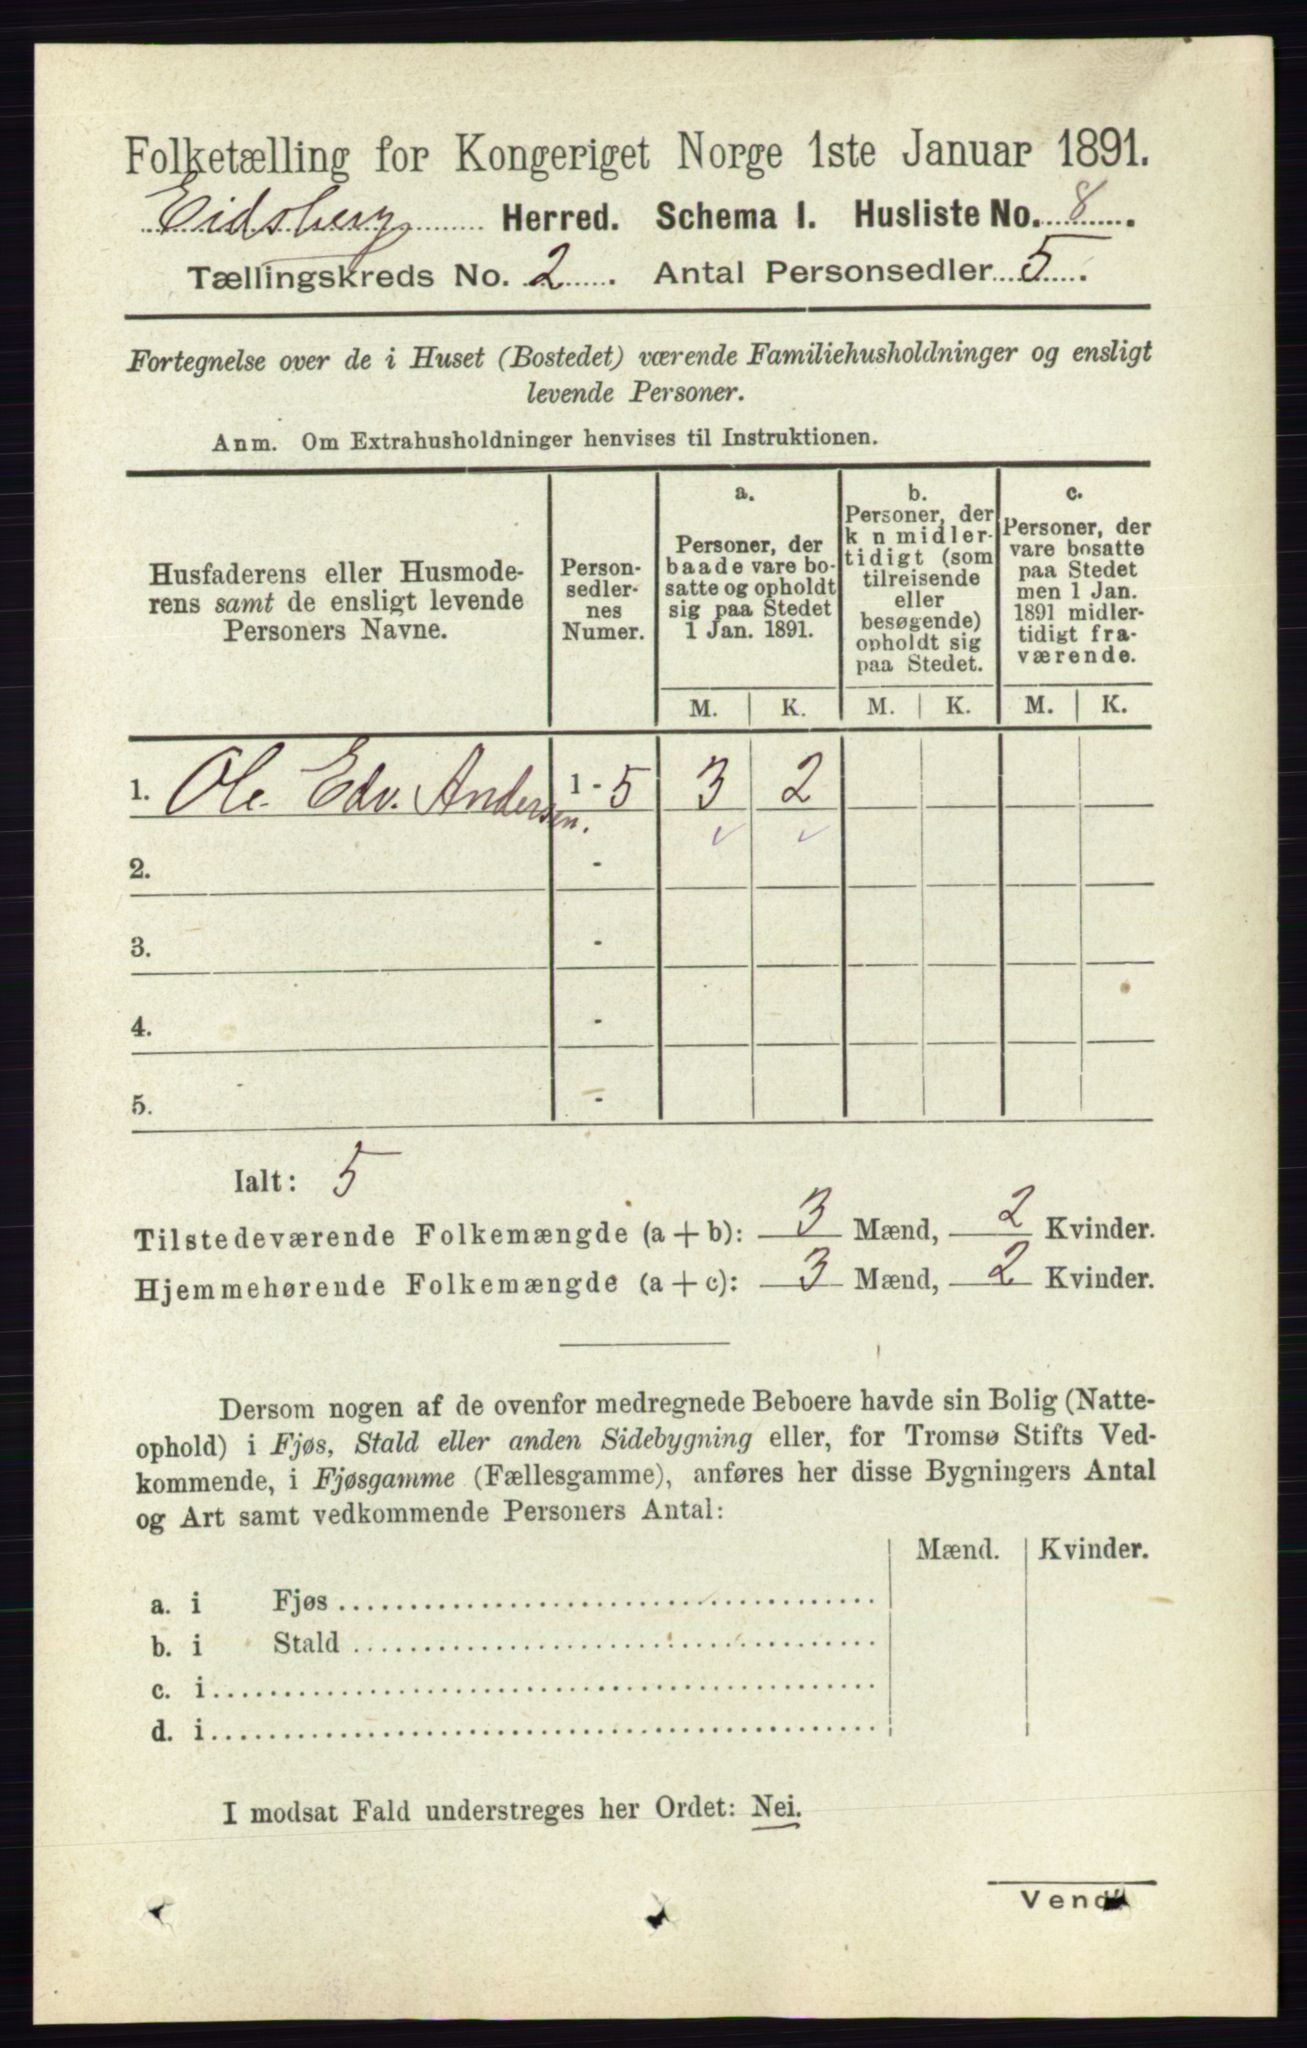 Folketælling for Kongeriget Norge 1ste Januar 1891.
Eidsberg Herred. Schema I. Husliste No. 8.
Tællingskreds No. 2. Antal Personsedler 5.
Fortegnelse over de i Huset (Bostedet) værende Familiehusholdninger og ensligt
levende Personer.
Anm. Om Extrahusholdninger henvises til Instruktionen.
Husfaderens eller Husmode-
rens samt de ensligt levende
Personers Navne.
Person-
sedler-
nes
Numer.
a.
Personer, der
baade vare bo-
satte og opholdt
sig paa Stedet
1 Jan. 1891.
b.
Personer, der
k n midler-
tidigt (som
tilreisende
eller
besøgende)
opholdt sig
paa Stedet.
c.
Personer, der
vare bosatte
paa Stedet
men 1 Jan.
1891 midler-
tidigt fra-
værende.
M. K. M. K. M. K.
1. Ole Edv. Andersen. 1 - 5 3 2
2. -
3. -
4. -
5. -
Ialt: 5
Tilstedeværende Folkemængde (a + b): 3 Mænd, 2 Kvinder.
Hjemmehørende Folkemængde (a + c): 3 Mænd, 2 Kvinder.
Dersom nogen af de ovenfor medregnede Beboere havde sin Bolig (Natte-
ophold) i Fjøs, Stald eller anden Sidebygning eller, for Tromsø Stifts Ved-
kommende, i Fjøsgamme (Fællesgamme), anføres her disse Bygningers Antal
og Art samt vedkommende Personers Antal:
Mænd. Kvinder.
a. i Fjøs
b. i Stald
c. i
d. i
I modsat Fald understreges her Ordet: Nei.
Vend!